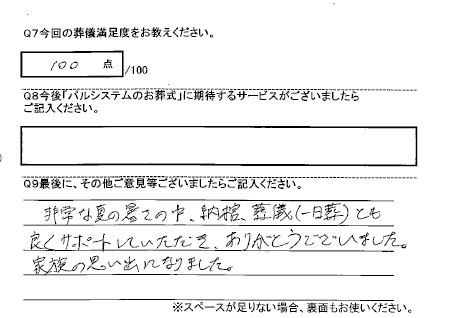 Q7今回の葬儀満足度をお教えください。
100 点 /100
Q8今後「パルシステムのお葬式」に期待するサービスがございましたら
ご記入ください。
Q9最後に、その他ご意見等ございましたらご記入ください。
非常な夏の暑さの中、納棺、葬儀(一日葬)とも
良くサポートしていただき、ありがとうございました。
家族の思い出になりました。
※スペースが足りない場合、裏面もお使いください。